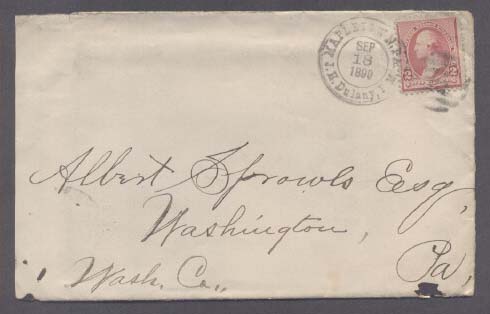 MAPLETOWN, PA.
SEP
18
1890
T.H. Dulany, P.M.
2 2
Albert Sprowls Esq,
Washington,
Pa,
Wash. Co.,